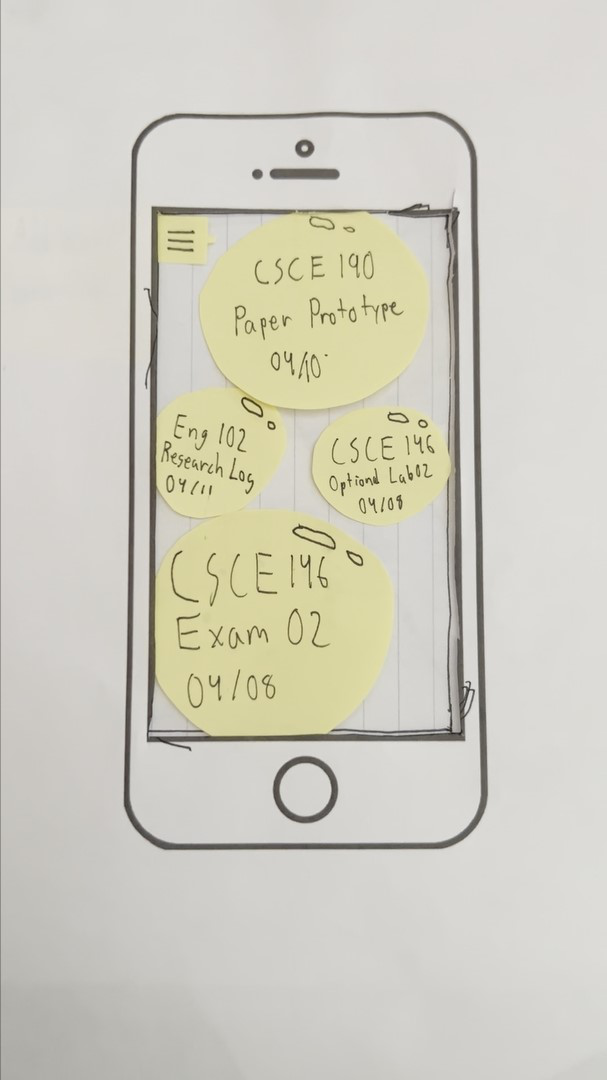 CSCE 190
Paper Prototype
04/10
Eng 102
Research Log
04/11
CSCE 146
Optional Lab 02
04/08
CSCE 146
Exam 02
04/08